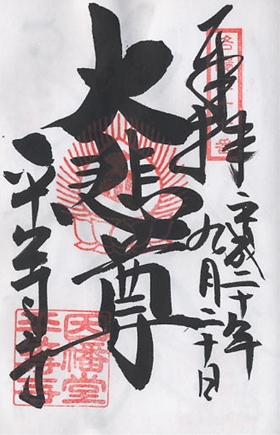 奉拝
平成二十年
九月二十日
大悲尊
平等寺
因幡堂
平等寺